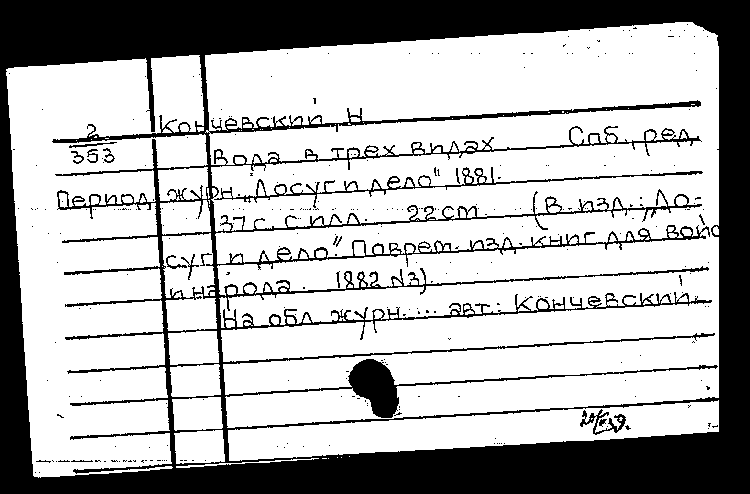 2
353
Период.
Кончевский, Н
Вода в трех видах. Спб., ред.
журн. „Досуг и дело", 1881.
37 с. с илл. 22 cm. (В изд.: „До-
суг и дело". Поврем. изд. книг для войс
и народа. 1882 №3).
На обл. журн. ... авт.: Кончевский.